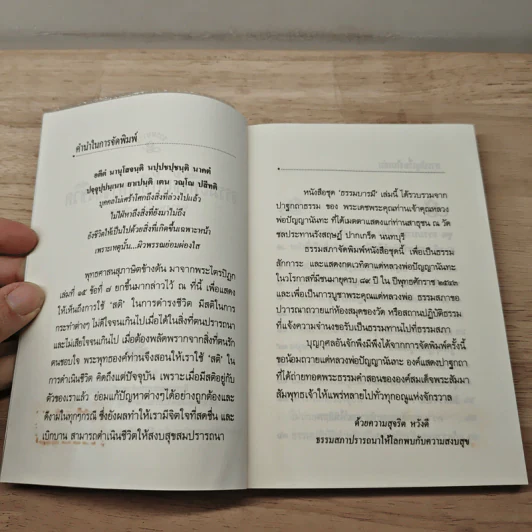 คำนำในการจัดพิมพ์
อตีตํ นานุโสจนฺติ นปฺปชปฺปนฺติ นาคตํ
ปจฺจุปฺปนฺเนน ยาเปนฺติ เตน วณฺโณ ปสีทติ
บุคคลไม่เศร้าโศกถึงสิ่งที่ล่วงไปแล้ว
ไม่ใฝ่หาถึงสิ่งที่ยังมาไม่ถึง
ยังชีวิตให้เป็นไปด้วยสิ่งที่เกิดขึ้นเฉพาะหน้า
เพราะเหตุนั้น...ผิวพรรณย่อมผ่องใส
พุทธศาสนสุภาษิตข้างต้น มาจากพระไตรปิฎก
เล่มที่ ๑๕ ข้อที่ ๘ ยกขึ้นมากล่าวไว้ ณ ที่นี้ เพื่อแสดง
ให้เห็นถึงการใช้ "สติ" ในการดำรงชีวิต มีสติในการ
กระทำต่างๆ ไม่ดีใจจนเกินไปเมื่อได้ในสิ่งที่ตนปรารถนา
และไม่เสียใจจนเกินไป เมื่อต้องพลัดพรากจากสิ่งที่ตนรัก
ตนชอบใจ พระพุทธองค์ท่านจึงสอนให้เราใช้ 'สติ' ใน
การดำเนินชีวิต คิดถึงแต่ปัจจุบัน เพราะเมื่อมีสติอยู่กับ
ตัวของเราแล้ว ย่อมแก้ปัญหาต่างๆได้อย่างถูกต้องและ
ดีงามในทุกๆกรณี ซึ่งยังผลทำให้เรามีจิตใจที่สดชื่น และ
เบิกบาน สามารถดำเนินชีวิตให้สงบสุขสมปรารถนา
หนังสือชุด "ธรรมบารมี" เล่มนี้ ได้รวบรวมจาก
ปาฐกถาธรรม ของ พระเดชพระคุณท่านเจ้าคุณหลวง
พ่อปัญญานันทะ ที่ได้เมตตาแสดงแก่ท่านสาธุชน ณ วัด
ชลประทานรังสฤษฎ์ ปากเกร็ด นนทบุรี
ธรรมสภาจัดพิมพ์หนังสือชุดนี้ เพื่อเป็นธรรม
สักการะ และแสดงกตเวทิตาแด่หลวงพ่อปัญญานันทะ
ในวโรกาสที่มีชนมายุครบ ๘๙ ปี ใน ปีพุทธศักราช ๒๕๔๓
และเพื่อเป็นการบูชาพระคุณแด่หลวงพ่อ ธรรมสภาขอ
ปวารณาถวายแก่ห้องสมุดของวัด หรือสถานปฏิบัติธรรม
ที่แจ้งความจำนงขอรับเป็นธรรมทานไปที่ธรรมสภา
บุญกุศลอันพึงมีพึงได้จากการจัดพิมพ์ครั้งนี้
ขอน้อมถวายแด่หลวงพ่อปัญญานันทะ องค์แสดงปาฐกถา
ที่ได้ถ่ายทอดพระธรรมคำสอนขององค์สมเด็จพระสัมมา
สัมพุทธเจ้าให้แพร่หลายไปทั่วทุกอณูแห่งจักรวาล
ด้วยความสุจริต หวังดี
ธรรมสภาปรารถนาให้โลกพบกับความสงบสุข